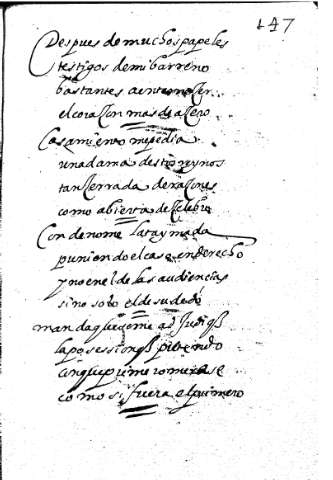 147
Despues de muchos papeles
testigos de mi barreno
bastantes a enterneçer
el coraçon mas de açero
Casamiento me pedia
una dama destos reynos
tan çerrada de raçones
como abierta de çelebro
Condenome la taymada
puniendo el caso en derecho
y no en el de las audiencias
sino solo el de su dedo
manda que yo me adjudiq
la posession
aunque primero
como si fuera el primero